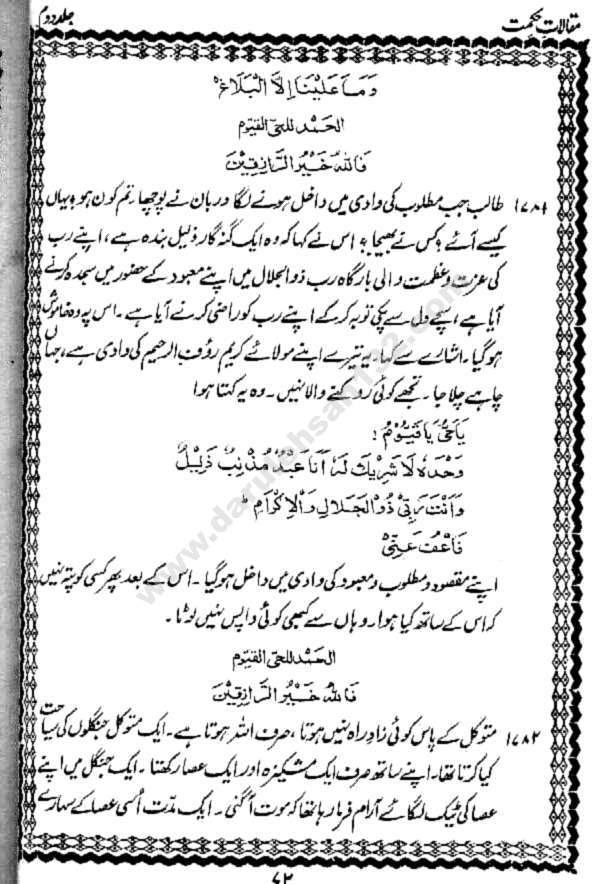 مقالات حکمت
جلد دوم
وَمَا عَلَيْنَا اِلَّا الْبَلَاغُ
الحمد للحی القیوم
فَاللّٰهُ خَيْرُ الرَّازِقِيْنَ
۱۷۸۱ طالب جب مطلوب کی وادی میں داخل ہونے لگا دربان نے پوچھا، تم کون ہو، یہاں
کیسے آئے ؟ کس نے بھیجا ؟ اس نے کہا کہ وہ ایک گنہگار ذلیل بندہ ہے ، اپنے رب
کی عزت و عظمت والی بارگاہ رب ذوالجلال میں اپنے معبود کے حضور میں سجدہ کرنے
آیا ہے ، سچے دل سے پکی توبہ کرکے اپنے رب کو راضی کرنے آیا ہے ۔ اس پہ وہ خاموش
ہو گیا ۔ اشارے سے کہا ۔ یہ تیرے اپنے مولائے کریم رؤف الرحیم کی وادی ہے ، جہاں
چاہے چلا جا ۔ تجھے کوئی روکنے والا نہیں ۔ وہ یہ کہتا ہوا
يَا حَيُّ يَا قَيُّوْمُ :
وَحْدَهٗ لَا شَرِيْكَ لَهٗ اَنَا عَبْدٌ مُذْنِبٌ ذَلِيْلٌ
وَاَنْتَ رَبِّيْ ذُوالْجَلَالِ وَالْاِكْرَامِ ط
فَاعْفُ عَنِّيْ
اپنے مقصود و مطلوب و معبود کی وادی میں داخل ہو گیا ۔ اس کے بعد پھر کسی کو پتہ نہیں
کہ اس کے ساتھ کیا ہوا ۔ وہاں سے کبھی کوئی واپس نہیں لوٹا ۔
الحمد للحی القیوم
فَاللّٰهُ خَيْرُ الرَّازِقِيْنَ
۱۷۸۲ متوکل کے پاس کوئی زادِ راہ نہیں ہوتا ، صرف اللہ ہوتا ہے ۔ ایک متوکل جنگلوں کی سیاحت
کیا کرتا تھا ۔ اپنے ساتھ صرف ایک مشکیزہ اور ایک عصا رکھتا ۔ ایک جنگل میں اپنے
عصا کی ٹیک لگائے آرام فرما رہا تھا کہ موت آگئی ۔ ایک مدّت اُسی عصا کے سہارے
۷۲
www.darulehsan122.com